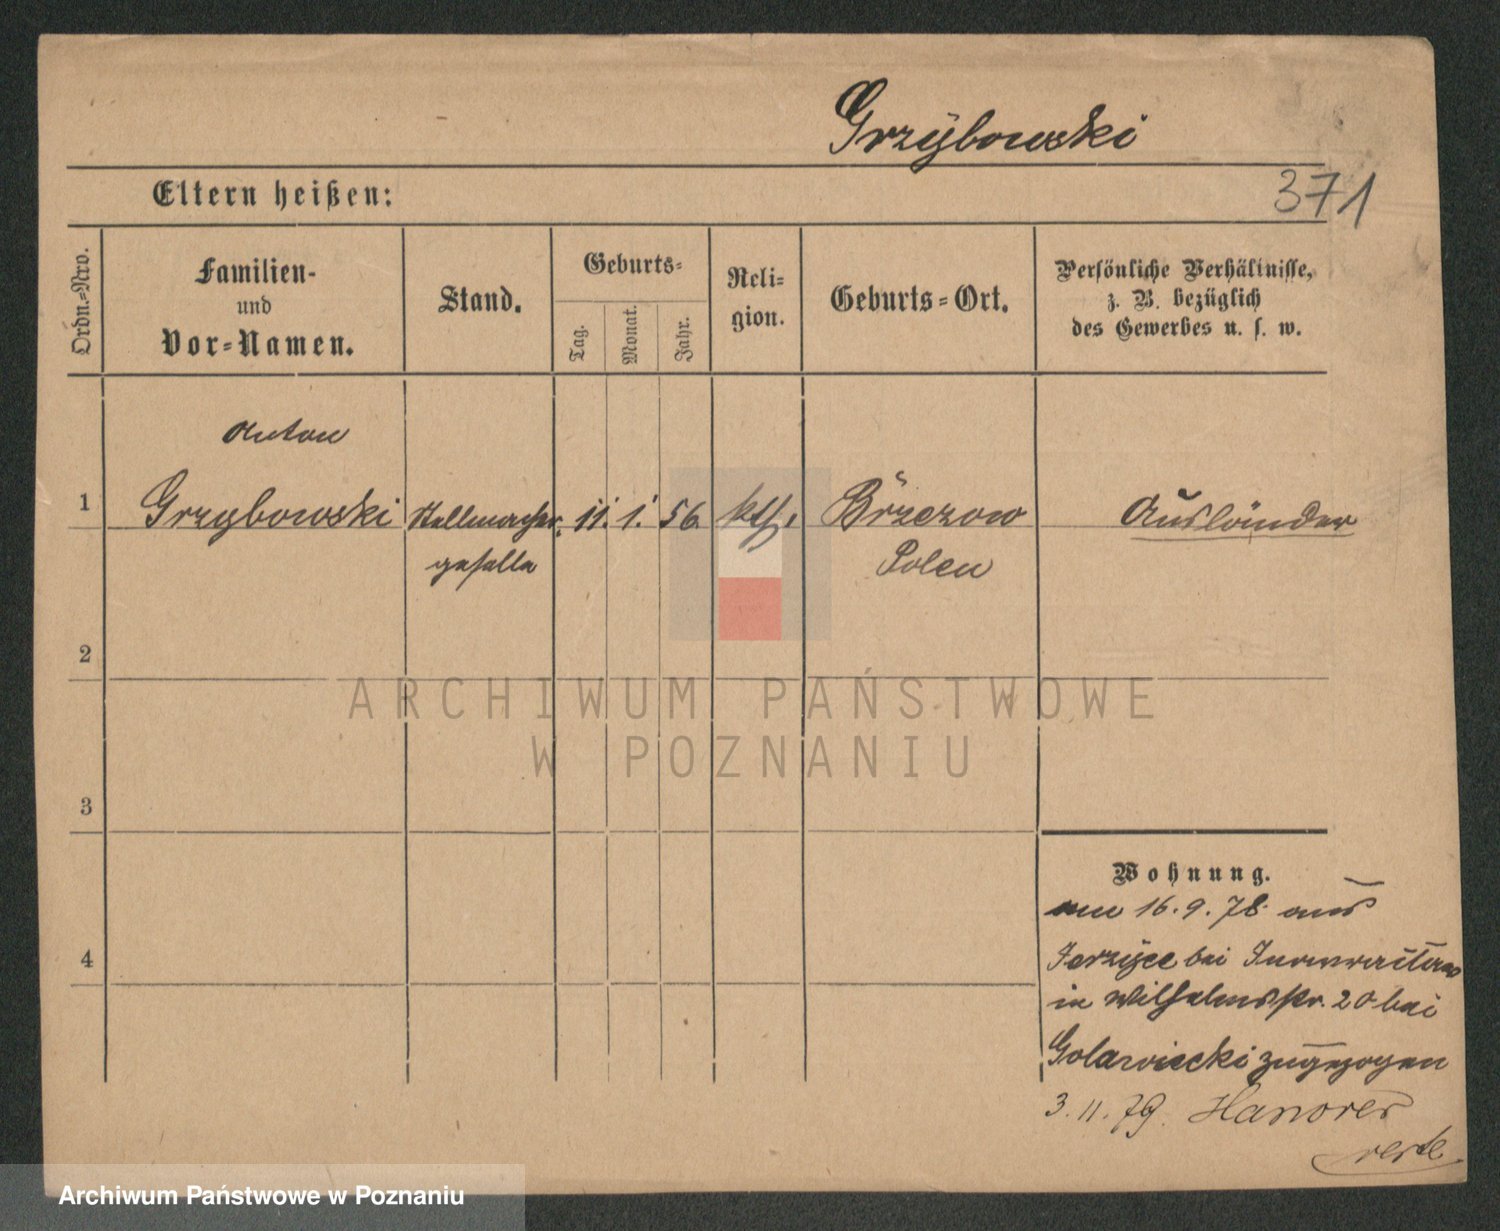 Grzybowski
Eltern heißen:
371
Ordn.-Nro.
Familien-
und
Vor-Namen.
Stand.
Geburts-
Tag.
Monat.
Jahr.
Reli-
gion.
Geburts-Ort.
Persönliche Verhältnisse,
z. B. bezüglich
des Gewerbes u. s. w.
Anton
1 Grzybowski Stellmacher 11. 1. 56. kth. Brzezow Ausländer
geselle Polen
2
ARCHIWUM PAŃSTWOWE
W POZNANIU
3
Wohnung.
am 16.9.78 aus
4
Jerzyce bei
in Wilhelmsstr. 20 bei
Golawiecki zugezogen
3.11.79. Hanover
Archiwum Państwowe w Poznaniu